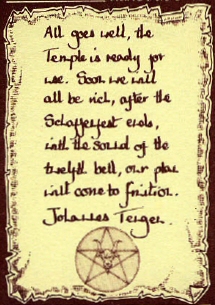 All goes well, the
Temple is ready for
use. Soon we will
all be rich, after the
Schafferfest ends,
with the sound of the
twelfth bell, our plan
will come to fruition.
Johannes Teugen